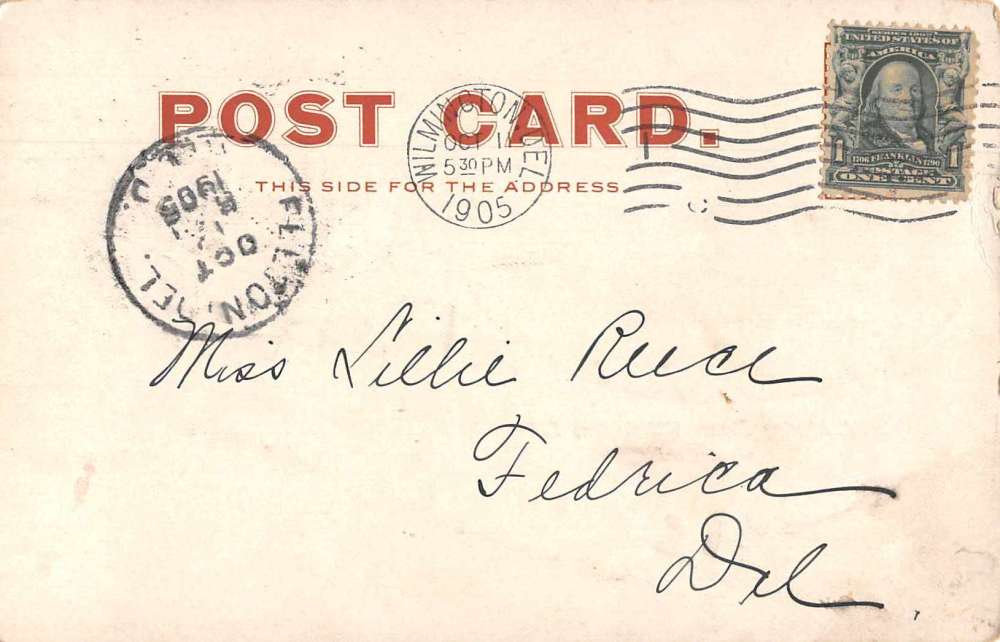 POST CARD.
THIS SIDE FOR THE ADDRESS.
WILMINGTON, DEL.
OCT 11
5 30 PM
1905
SERIES 1902
UNITED STATES OF
AMERICA
1706 FRANKLIN 1790
1 1
ONE CENT
DEL.
OCT
1905
Miss Lillie Reece
Fedrica
Del